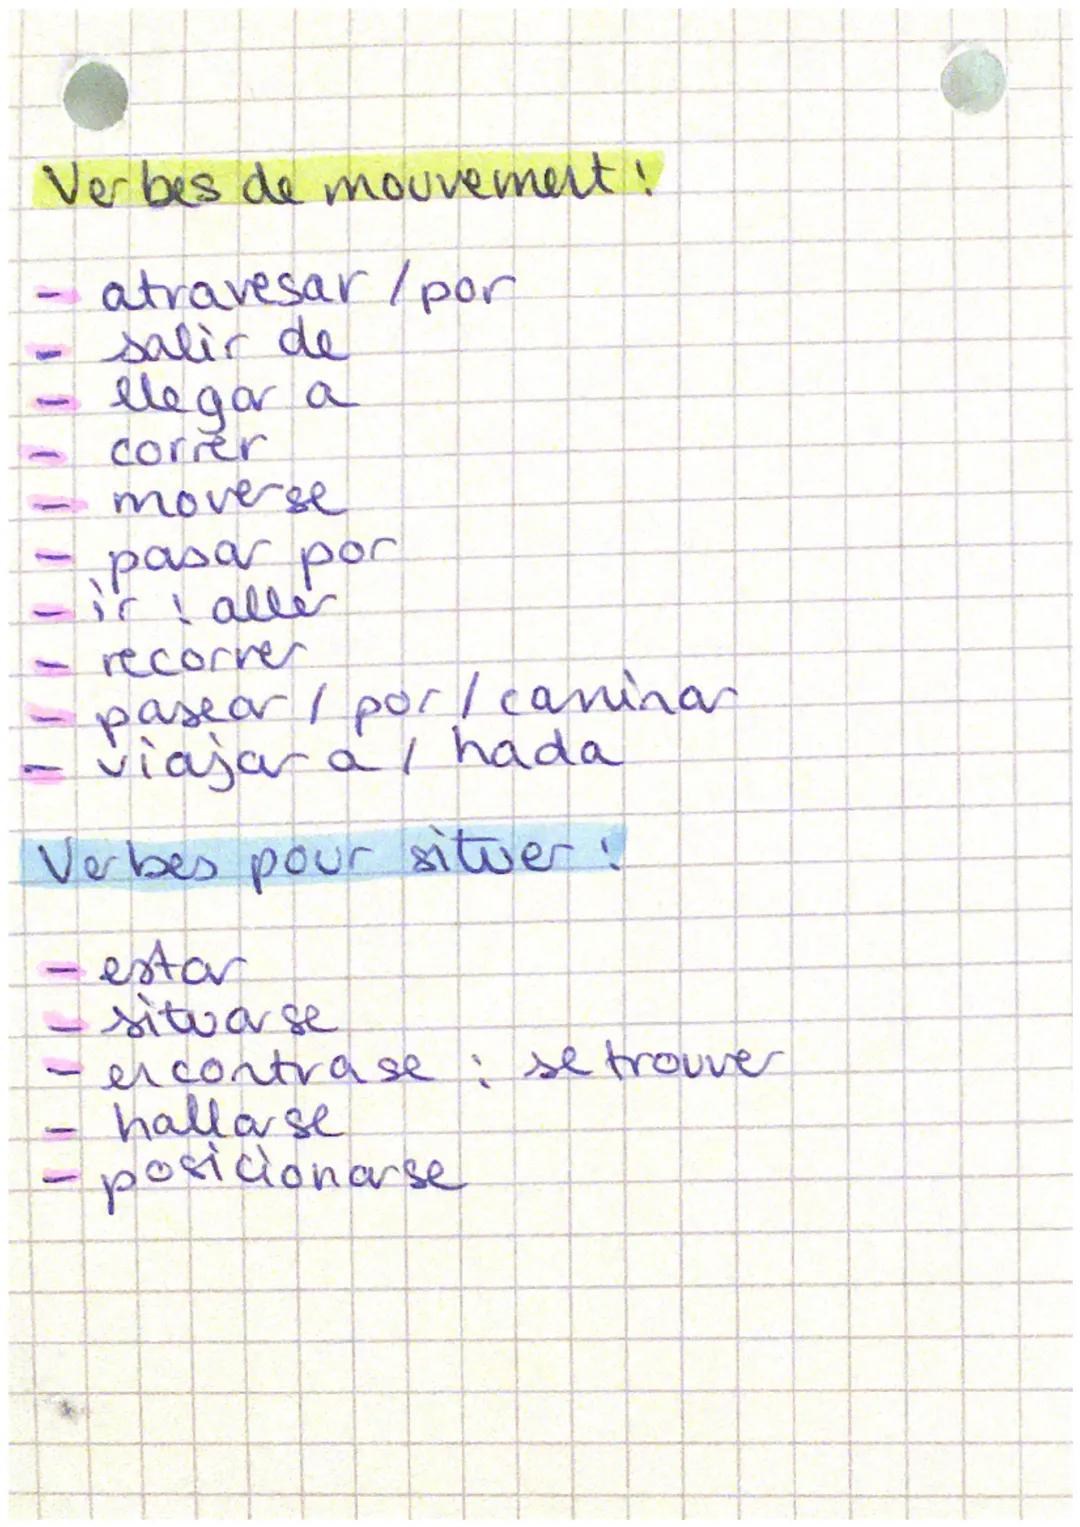 Verbes de mouvement :
- atravesar / por
- salir de
- llegar a
- correr
- moverse
- pasar por
- ir : aller
- recorrer
- pasear / por / caminar
- viajar a / hada
Verbes pour situer :
- estar
- situarse
- encontrase : se trouver
- hallarse
- posicionarse